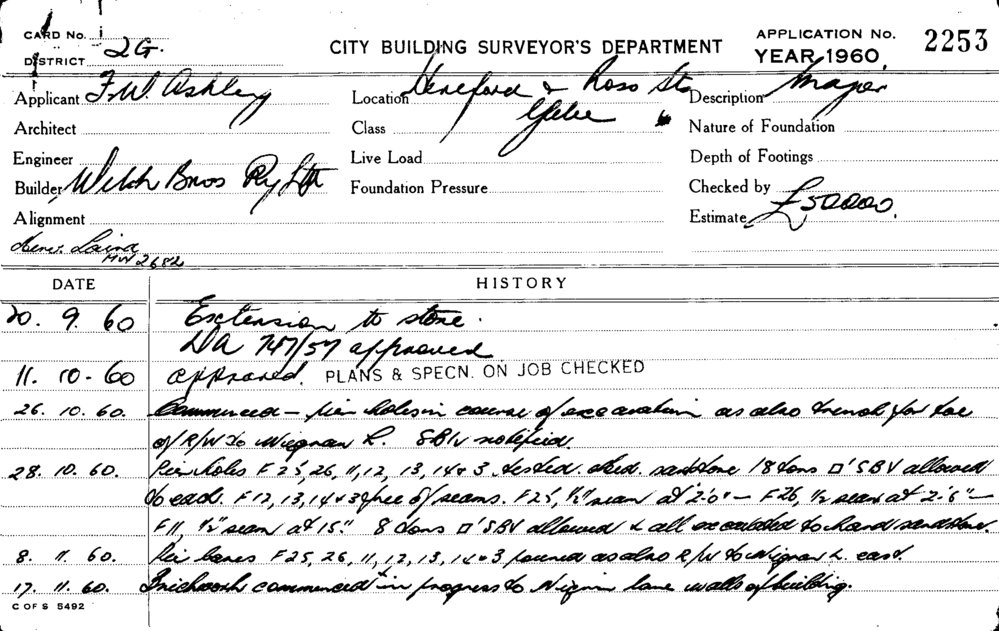 CARD No. 1
CITY BUILDING SURVEYOR'S DEPARTMENT
APPLICATION No. 2253
YEAR 1960.
DISTRICT 2G.
Applicant F.W. Ashley
Location Hereford & Ross Sts
Glebe
Description Major
Architect
Class
Nature of Foundation
Engineer
Live Load
Depth of Footings
Builder Welch Bros Pty Ltd
Foundation Pressure
Checked by
Alignment
Estimate £50000.
MW2682
DATE HISTORY
20. 9. 60 Extension to store.
DA 747/57 approved
11. 10-60 approved. PLANS & SPECN. ON JOB CHECKED
26. 10. 60. Commenced – pier holes in course of excavation as also trench for toe
of R/W to L. notified.
28. 10. 60. Pier holes F 25, 26, 11, 12, 13, 14 & 3 tested. sandstone 18 tons □' SBV allowed
to each. F 12, 13, 14 & 3 free of seams. F 25, ½" seam at 2'.0" – F 26, ½ seam at 2'.6" –
F 11, ½" seam at 15". 8 tons □' SBV allowed & all excavated to hard sandstone.
8. 11. 60. Pier bases F 25, 26, 11, 12, 13, 14 & 3 poured as also R/W to L. east.
17. 11. 60. Brickwork commenced + in progress to lane walls of building.
C OF S 5492